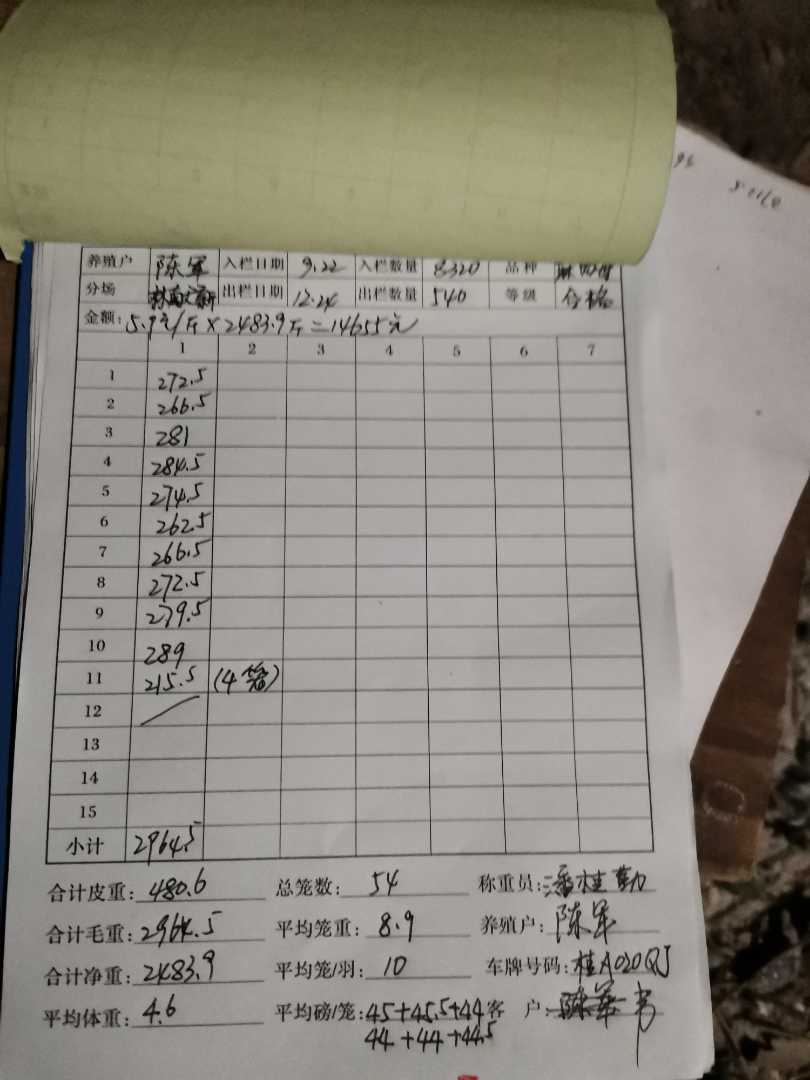 养殖户 陈军 入栏日期 9.22 入栏数量 8320 品种
分场 出栏日期 12.24 出栏数量 540 等级 合格
金额: 5.9元/斤×2483.9斤=14655元
1 2 3 4 5 6 7
1 272.5
2 266.5
3 281
4 284.5
5 274.5
6 262.5
7 266.5
8 272.5
9 279.5
10 289
11 215.5 (4笼)
12
13
14
15
小计 2964.5
合计皮重: 480.6 总笼数: 54 称重员: 潘桂勤
合计毛重: 2964.5 平均笼重: 8.9 养殖户: 陈军
合计净重: 2483.9 平均笼/羽: 10 车牌号码: 桂A020QJ
平均体重: 4.6 平均磅/笼: 45+45.5+44 客户:
44+44+44.5